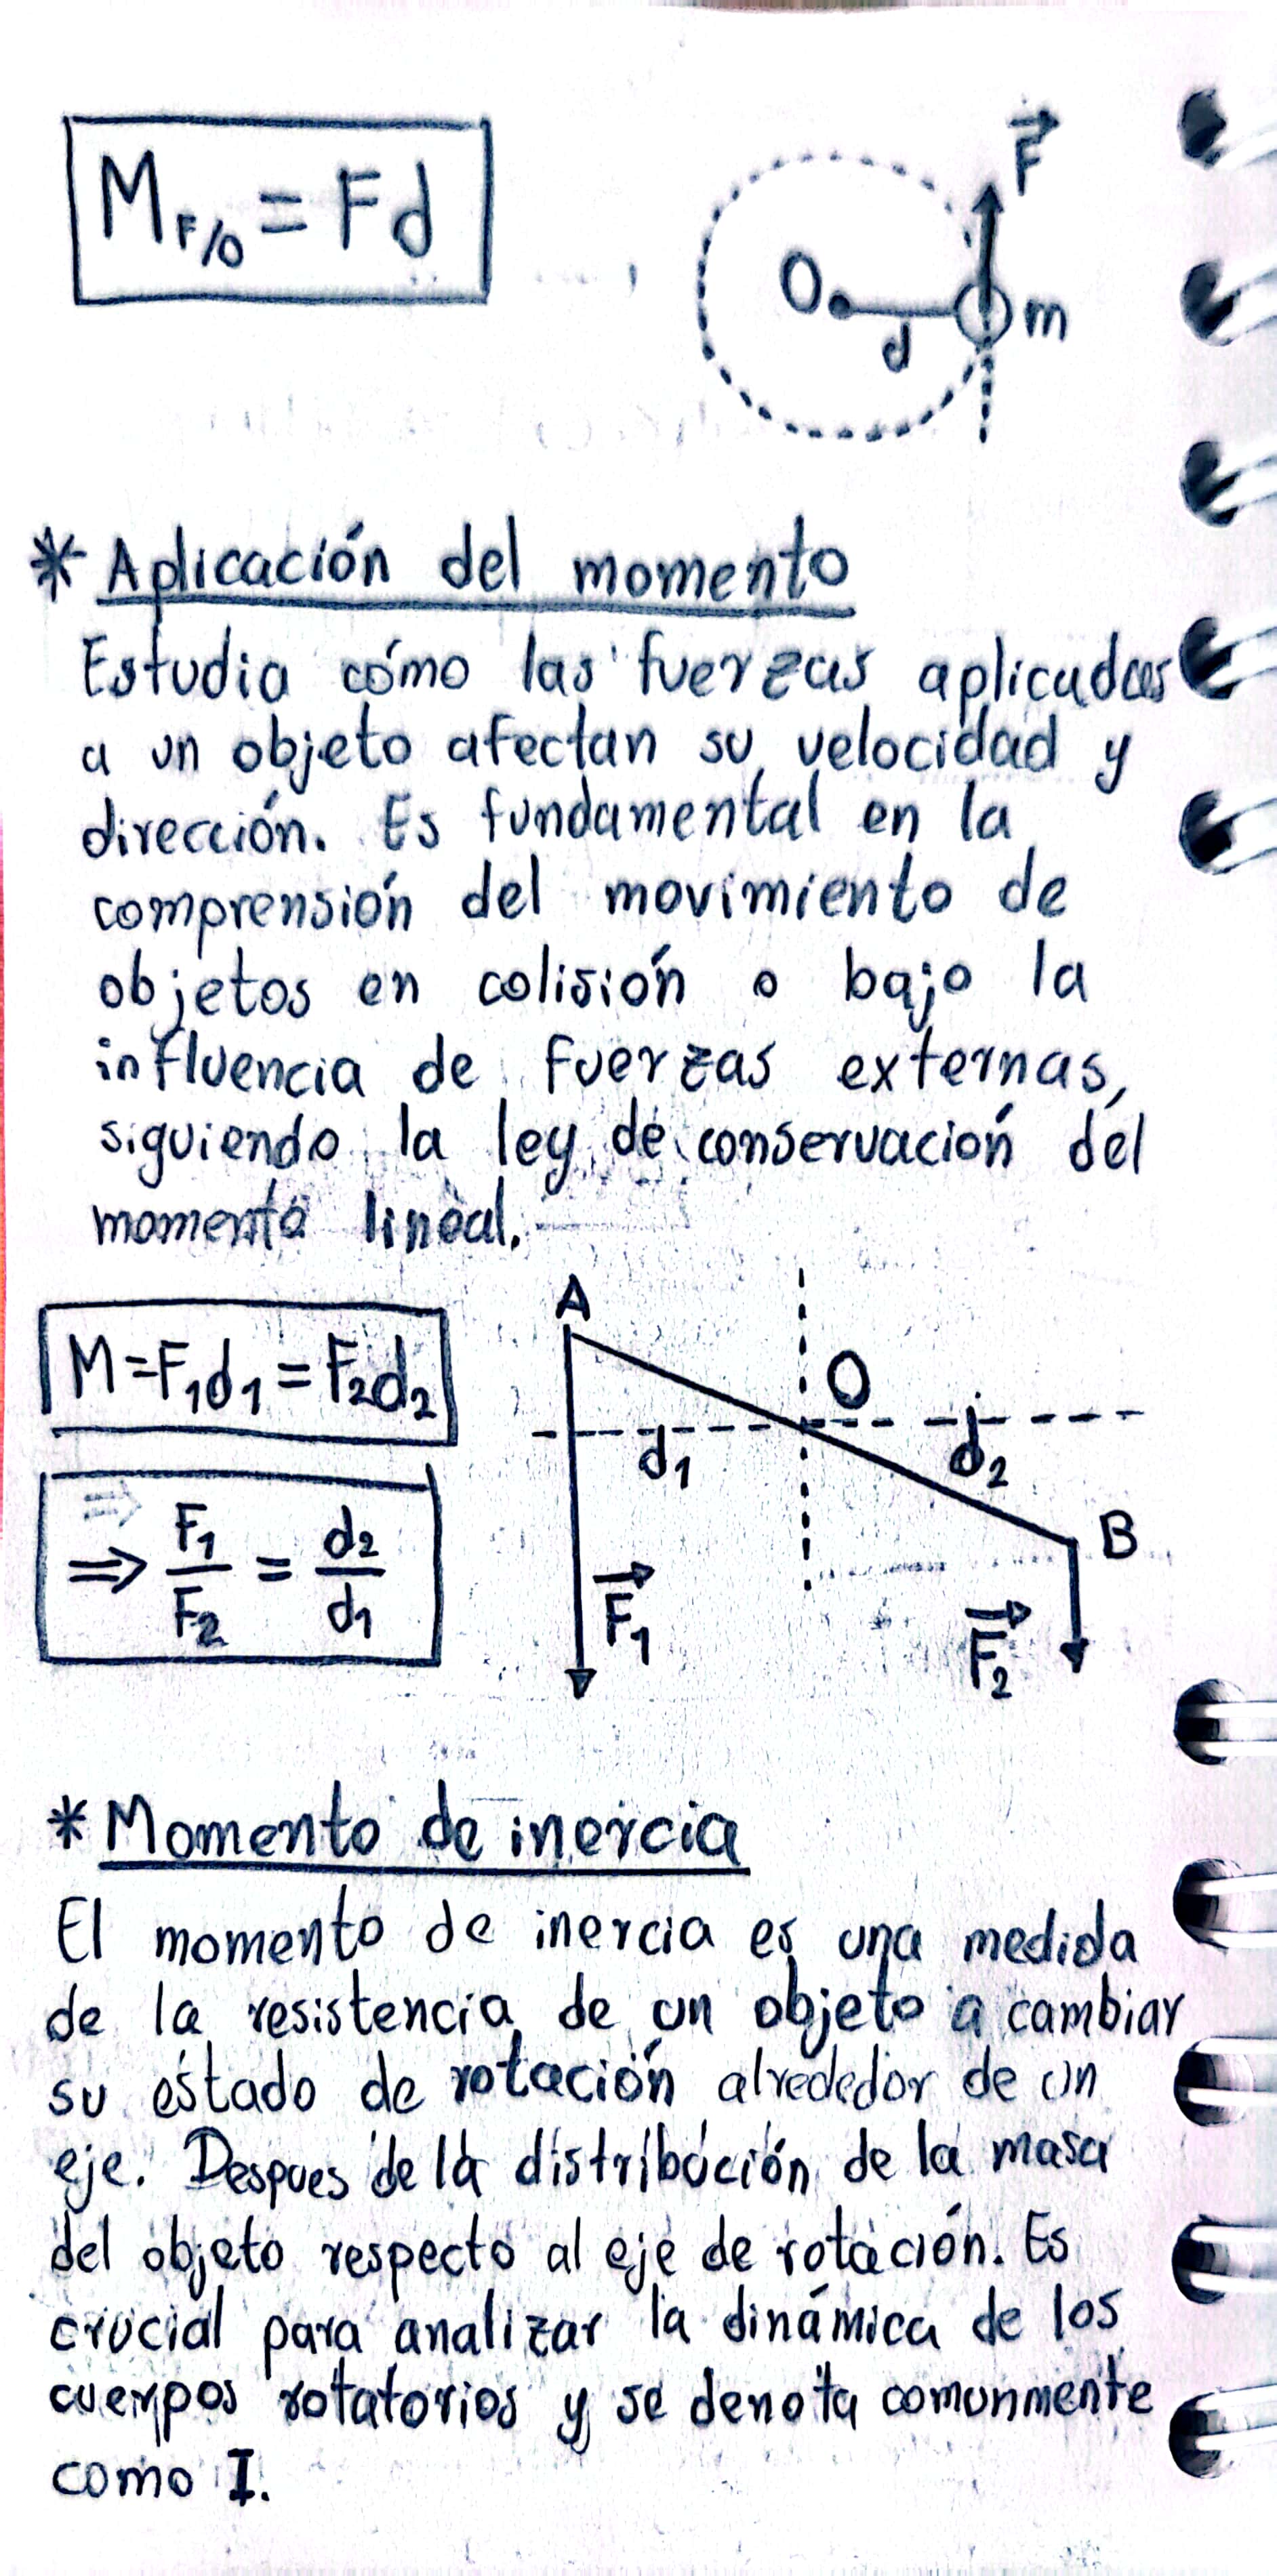 M_{F/O} = Fd
F⃗
O
d
m
* Aplicación del momento
Estudia cómo las fuerzas aplicadas
a un objeto afectan su velocidad y
dirección. Es fundamental en la
comprensión del movimiento de
objetos en colisión o bajo la
influencia de fuerzas externas,
siguiendo la ley de conservación del
momento lineal.
M=F₁d₁=F₂d₂
⇒ F₁/F₂ = d₂/d₁
A
O
d₁
d₂
B
F⃗₁
F⃗₂
* Momento de inercia
El momento de inercia es una medida
de la resistencia de un objeto a cambiar
su estado de rotación alrededor de un
eje. Despues de la distribución de la masa
del objeto respecto al eje de rotación. Es
crucial para analizar la dinámica de los
cuerpos rotatorios y se denota comunmente
como I.